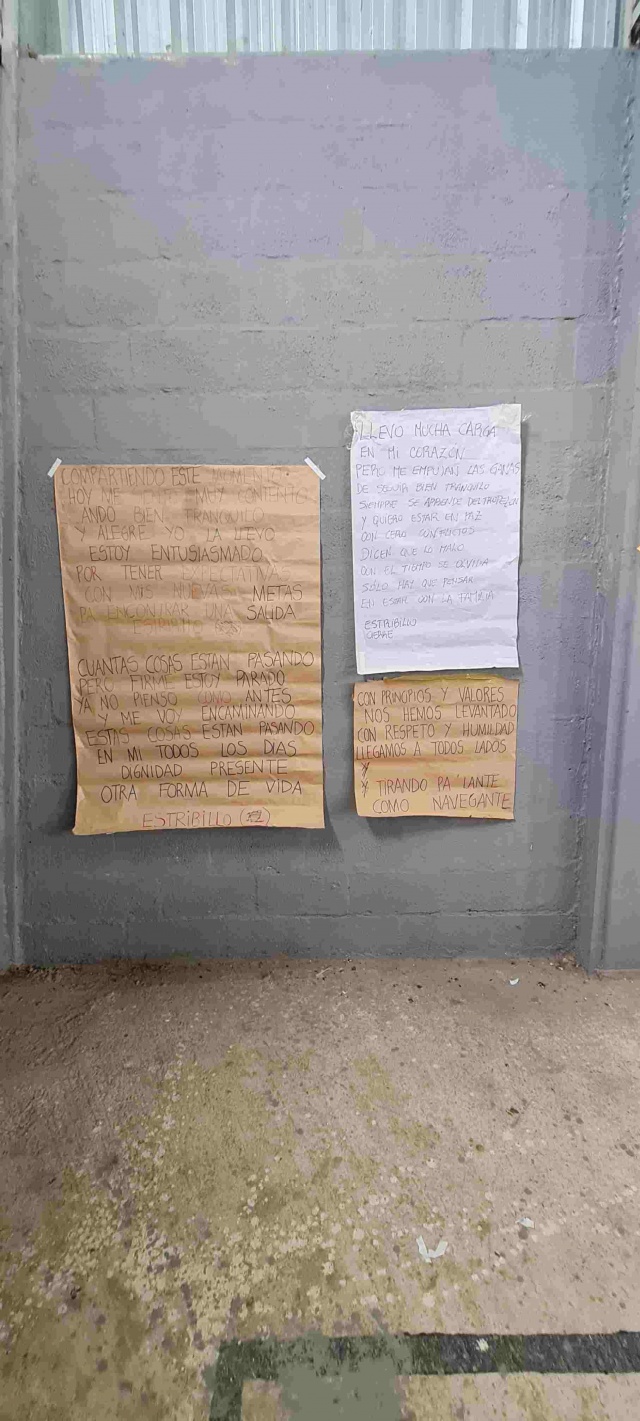 COMPARTIENDO ESTE MOMENTO
HOY ME SIENTO MUY CONTENTO
ANDO BIEN TRANQUILO
Y ALEGRE YO LA LLEVO
ESTOY ENTUSIASMADO
POR TENER EXPECTATIVAS
CON MIS NUEVAS METAS
PA ENCONTRAR UNA SALIDA
ESTRIBILLO
CUANTAS COSAS ESTAN PASANDO
PERO FIRME ESTOY PARADO
YA NO PIENSO COMO ANTES
Y ME VOY ENCAMINANDO
ESTAS COSAS ESTAN PASANDO
EN MI TODOS LOS DIAS
DIGNIDAD PRESENTE
OTRA FORMA DE VIDA
ESTRIBILLO
LLEVO MUCHA CARGA
EN MI CORAZÓN
PERO ME EMPUJAN LAS GANAS
DE SEGUIR BIEN TRANQUILO
SIEMPRE SE APRENDE DEL TROPEZON
Y QUIERO ESTAR EN PAZ
CON CERO CONFLICTOS
DICEN QUE LO MALO
CON EL TIEMPO SE OLVIDA
SOLO HAY QUE PENSAR
EN ESTAR CON LA FAMILIA
ESTRIBILLO
CON PRINCIPIOS Y VALORES
NOS HEMOS LEVANTADO
CON RESPETO Y HUMILDAD
LLEGAMOS A TODOS LADOS
Y
Y TIRANDO PA'LANTE
COMO NAVEGANTE